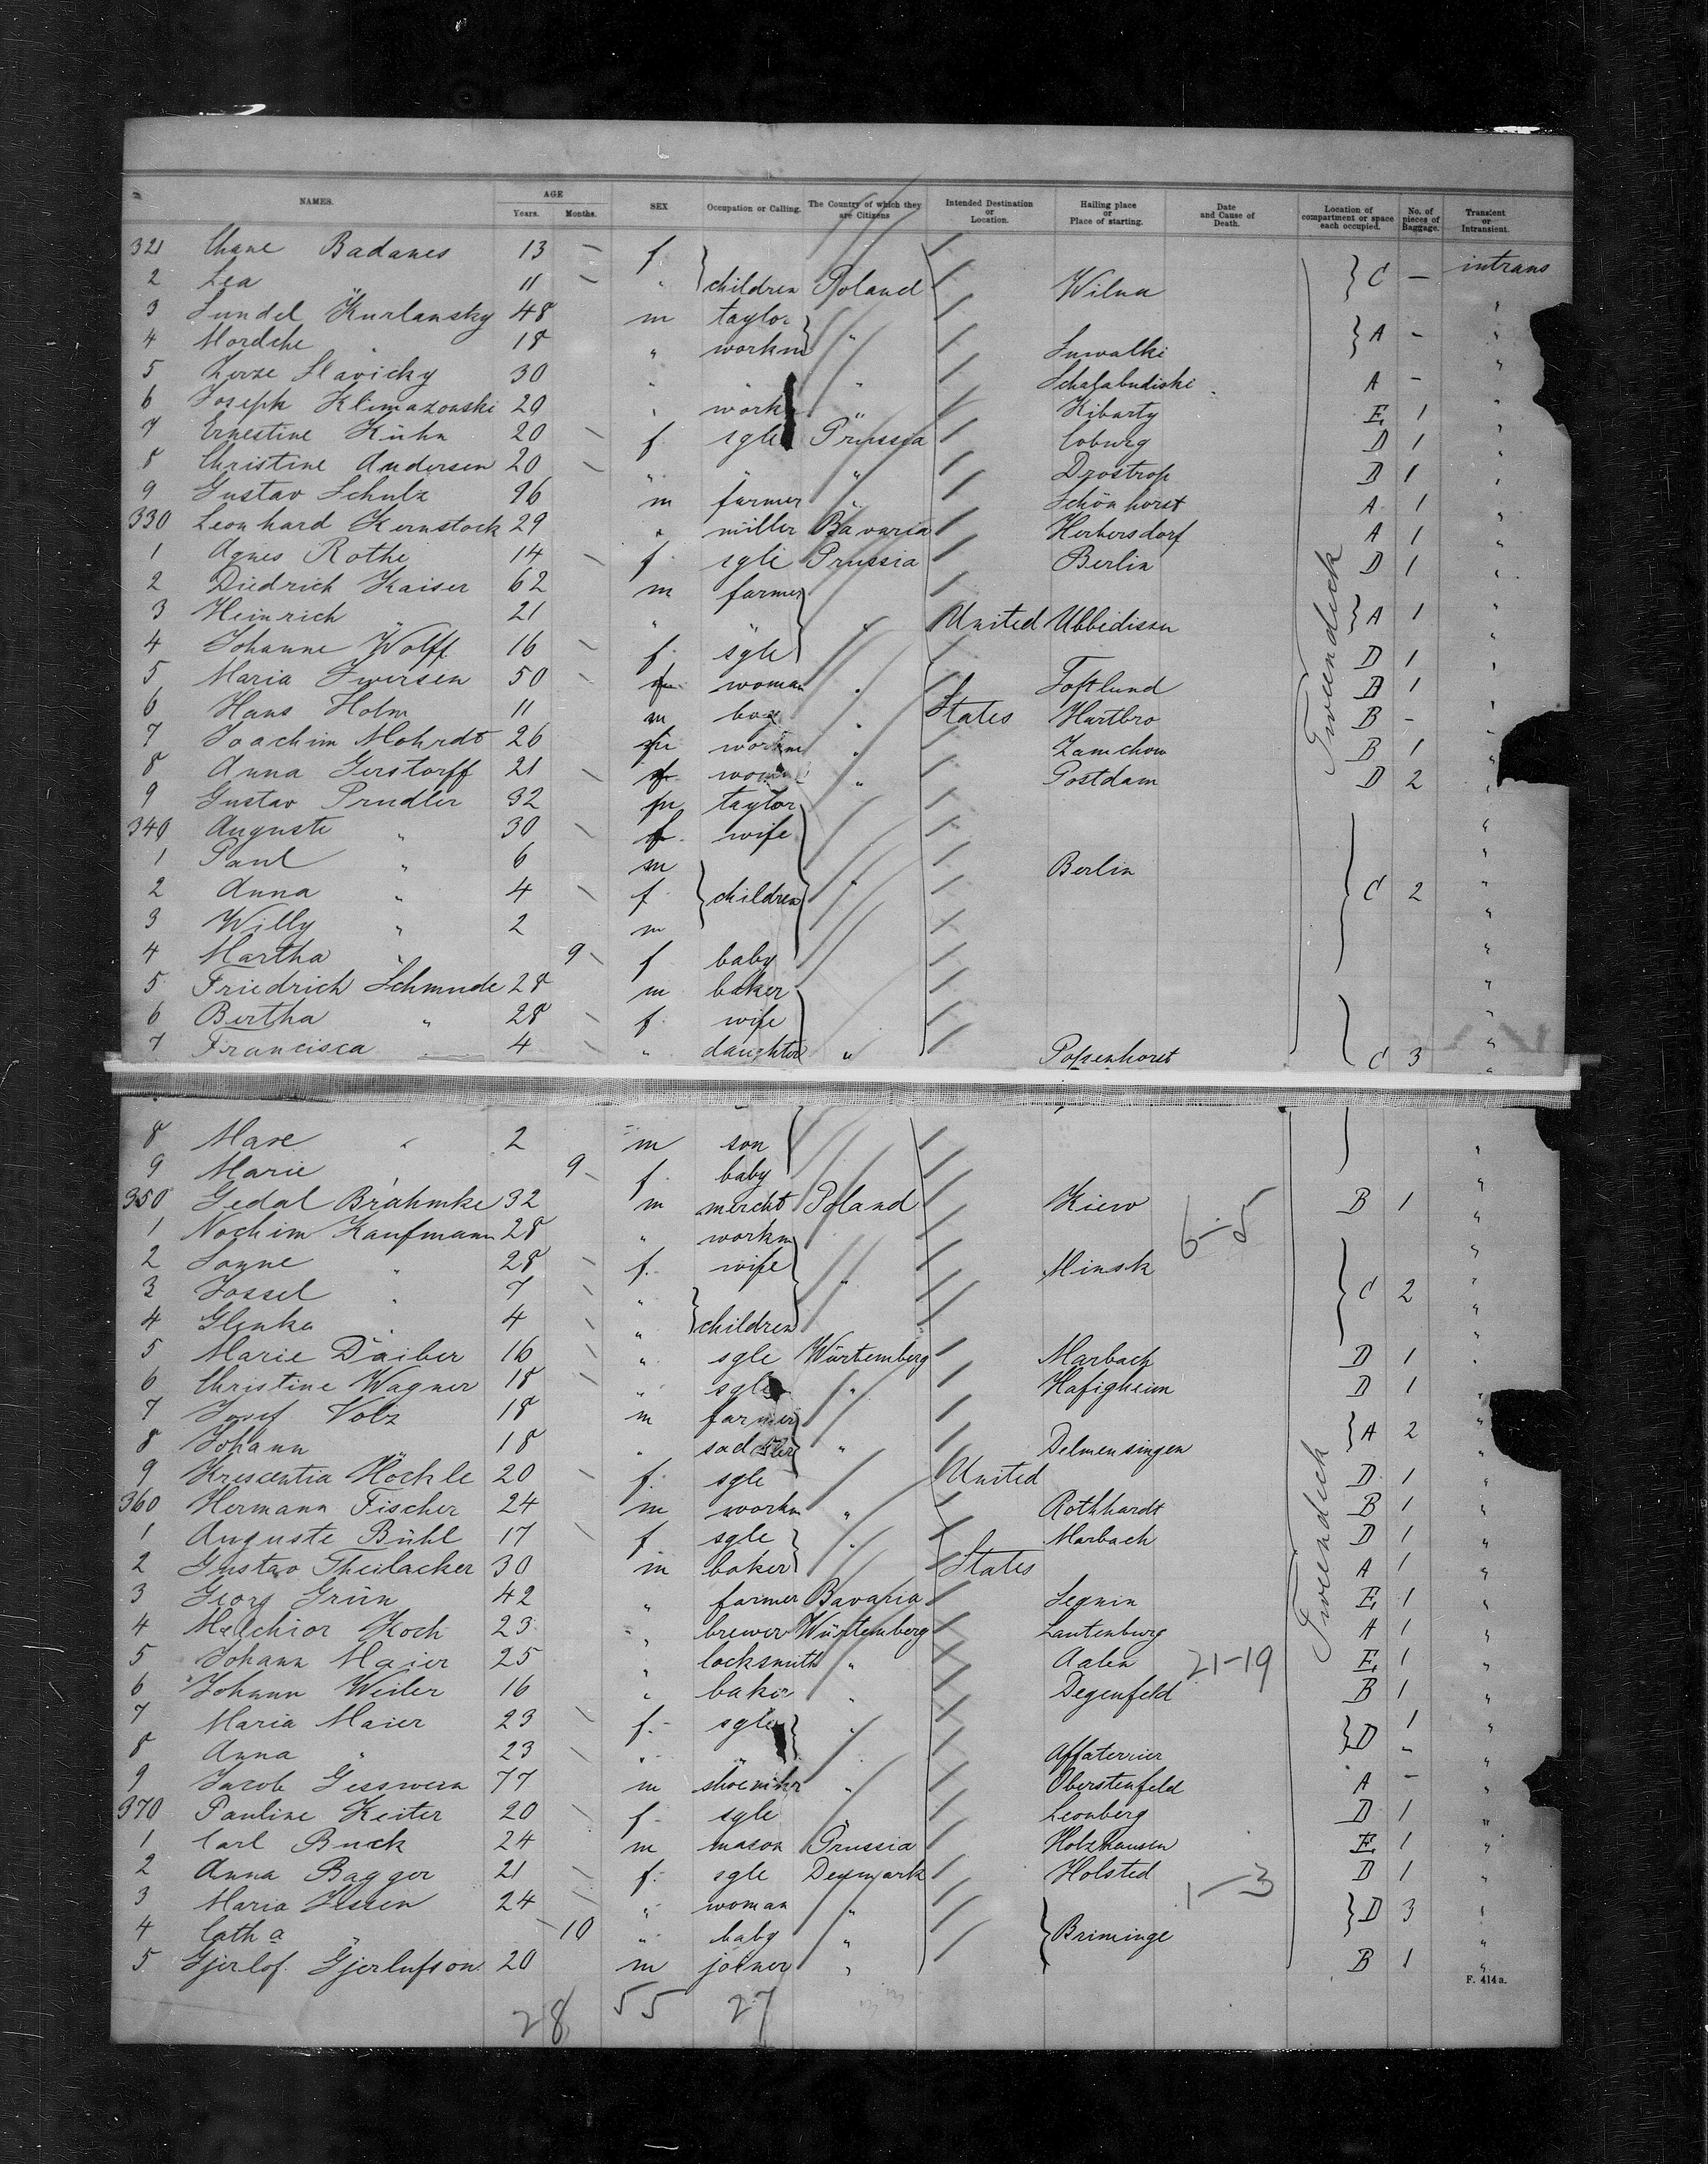 NAMES. AGE SEX Occupation or Calling. The Country of which they are Citizens Intended Destination or Location. Hailing place or Place of starting. Date and Cause of Death. Location of compartment or space each occupied. No. of pieces of Baggage. Transient or Intransient.
Years. Months.
321 Chane Badanes 13 — f. intrans
2 Lea " 11 — " children Poland Wilna C —
3 Sundel Kurlansky 48 m taylor "
4 Mordche " 18 " workm " Suwalki A - "
5 Slavicky 30 " " " A - "
6 Joseph Klimazowski 29 " workm " Kibarty E 1 "
7 Ernestine Kühn 20 — f. sgle Prussia Coburg D 1 "
8 Christine Andersen 20 — " " " Drostrop D 1 "
9 Gustav Schulz 26 m farmer " Schönhorst A 1 "
330 Leonhard Kernstock 29 " miller Bavaria Herbersdorf A 1 "
1 Agnes Rothe 14 — f. sgle Prussia Berlin D 1 "
2 Diedrich Kaiser 62 m farmer
3 Heinrich " 21 " " " United Ubbedissen A 1 "
4 Johanne Wolff 16 — f. sgle D 1 "
5 Maria Iwersen 50 — f. woman " Toftlund D 1 "
6 Hans Holm 11 m boy " States Hartbro B - "
7 Joachim Mohrdt 26 m workm " Zamchow B 1 "
8 Anna Gerstorff 21 — f. woman " Postdam D 2 "
9 Gustav Prudler 32 m taylor
340 Auguste " 30 — f. wife "
1 Paul " 6 m Berlin "
2 Anna " 4 — f. children " C 2 "
3 Willy " 2 m "
4 Martha " 9 — f baby "
5 Friedrich Schmude 28 m baker "
6 Bertha " 28 — f. wife "
7 Francisca 4 — " daughter " Poppenhorst C 3 "
Tweendeck
8 Maxe " 2 m son "
9 Marie " 9 — f. baby "
350 Gedal Brahmke 32 m mercht Poland Kiew 6-5 B 1 "
1 Nochim Kaufmann 28 " workm "
2 Sonne " 28 — f. wife " Minsk "
3 Jossel " 7 — " C 2 "
4 Glinka " 4 — " children "
5 Marie Däiber 16 — " sgle Würtemberg Marbach D 1 "
6 Christine Wagner 18 — " sgle " Hafigheim D 1 "
7 Josef Volz 18 m farmer "
8 Johann " 18 " saddler " Delmensingen A 2 "
9 Krescentia Höckle 20 — f. sgle United D 1 "
360 Hermann Fischer 24 m workm " Rothhardt B 1 "
1 Auguste Bühl 17 — f sgle " Marbach D 1 "
2 Gustav Theilacker 30 m baker States A 1 "
3 Georg Grün 42 " farmer Bavaria Legnin E 1 "
4 Melchior Koch 23 " brewer Würtemberg Lautenburg A 1 "
5 Johann Maier 25 " locksmith " Aalen 21-19 E 1 "
6 Johann Weiler 16 " baker " Degenfeld B 1 "
7 Maria Maier 23 — f. sgle " 1 "
8 Anna " 23 — " " Affaterrier D - "
9 Jacob Gesswein 77 m shoemkr " Oberstenfeld A - "
370 Pauline Keiter 20 — f sgle " Leonberg D 1 "
1 Carl Buck 24 m mason Prussia Holzhausen E 1 "
2 Anna Bagger 21 — f. sgle Denmark Holsted 1-3 D 1 "
3 Maria Jessen 24 — " woman " D 3 "
4 Catha " 10 " baby " Briminge "
5 Gjerlof Gjerlufson 20 m joiner " B 1 "
Tweendeck
F. 414 a.
28 55 27